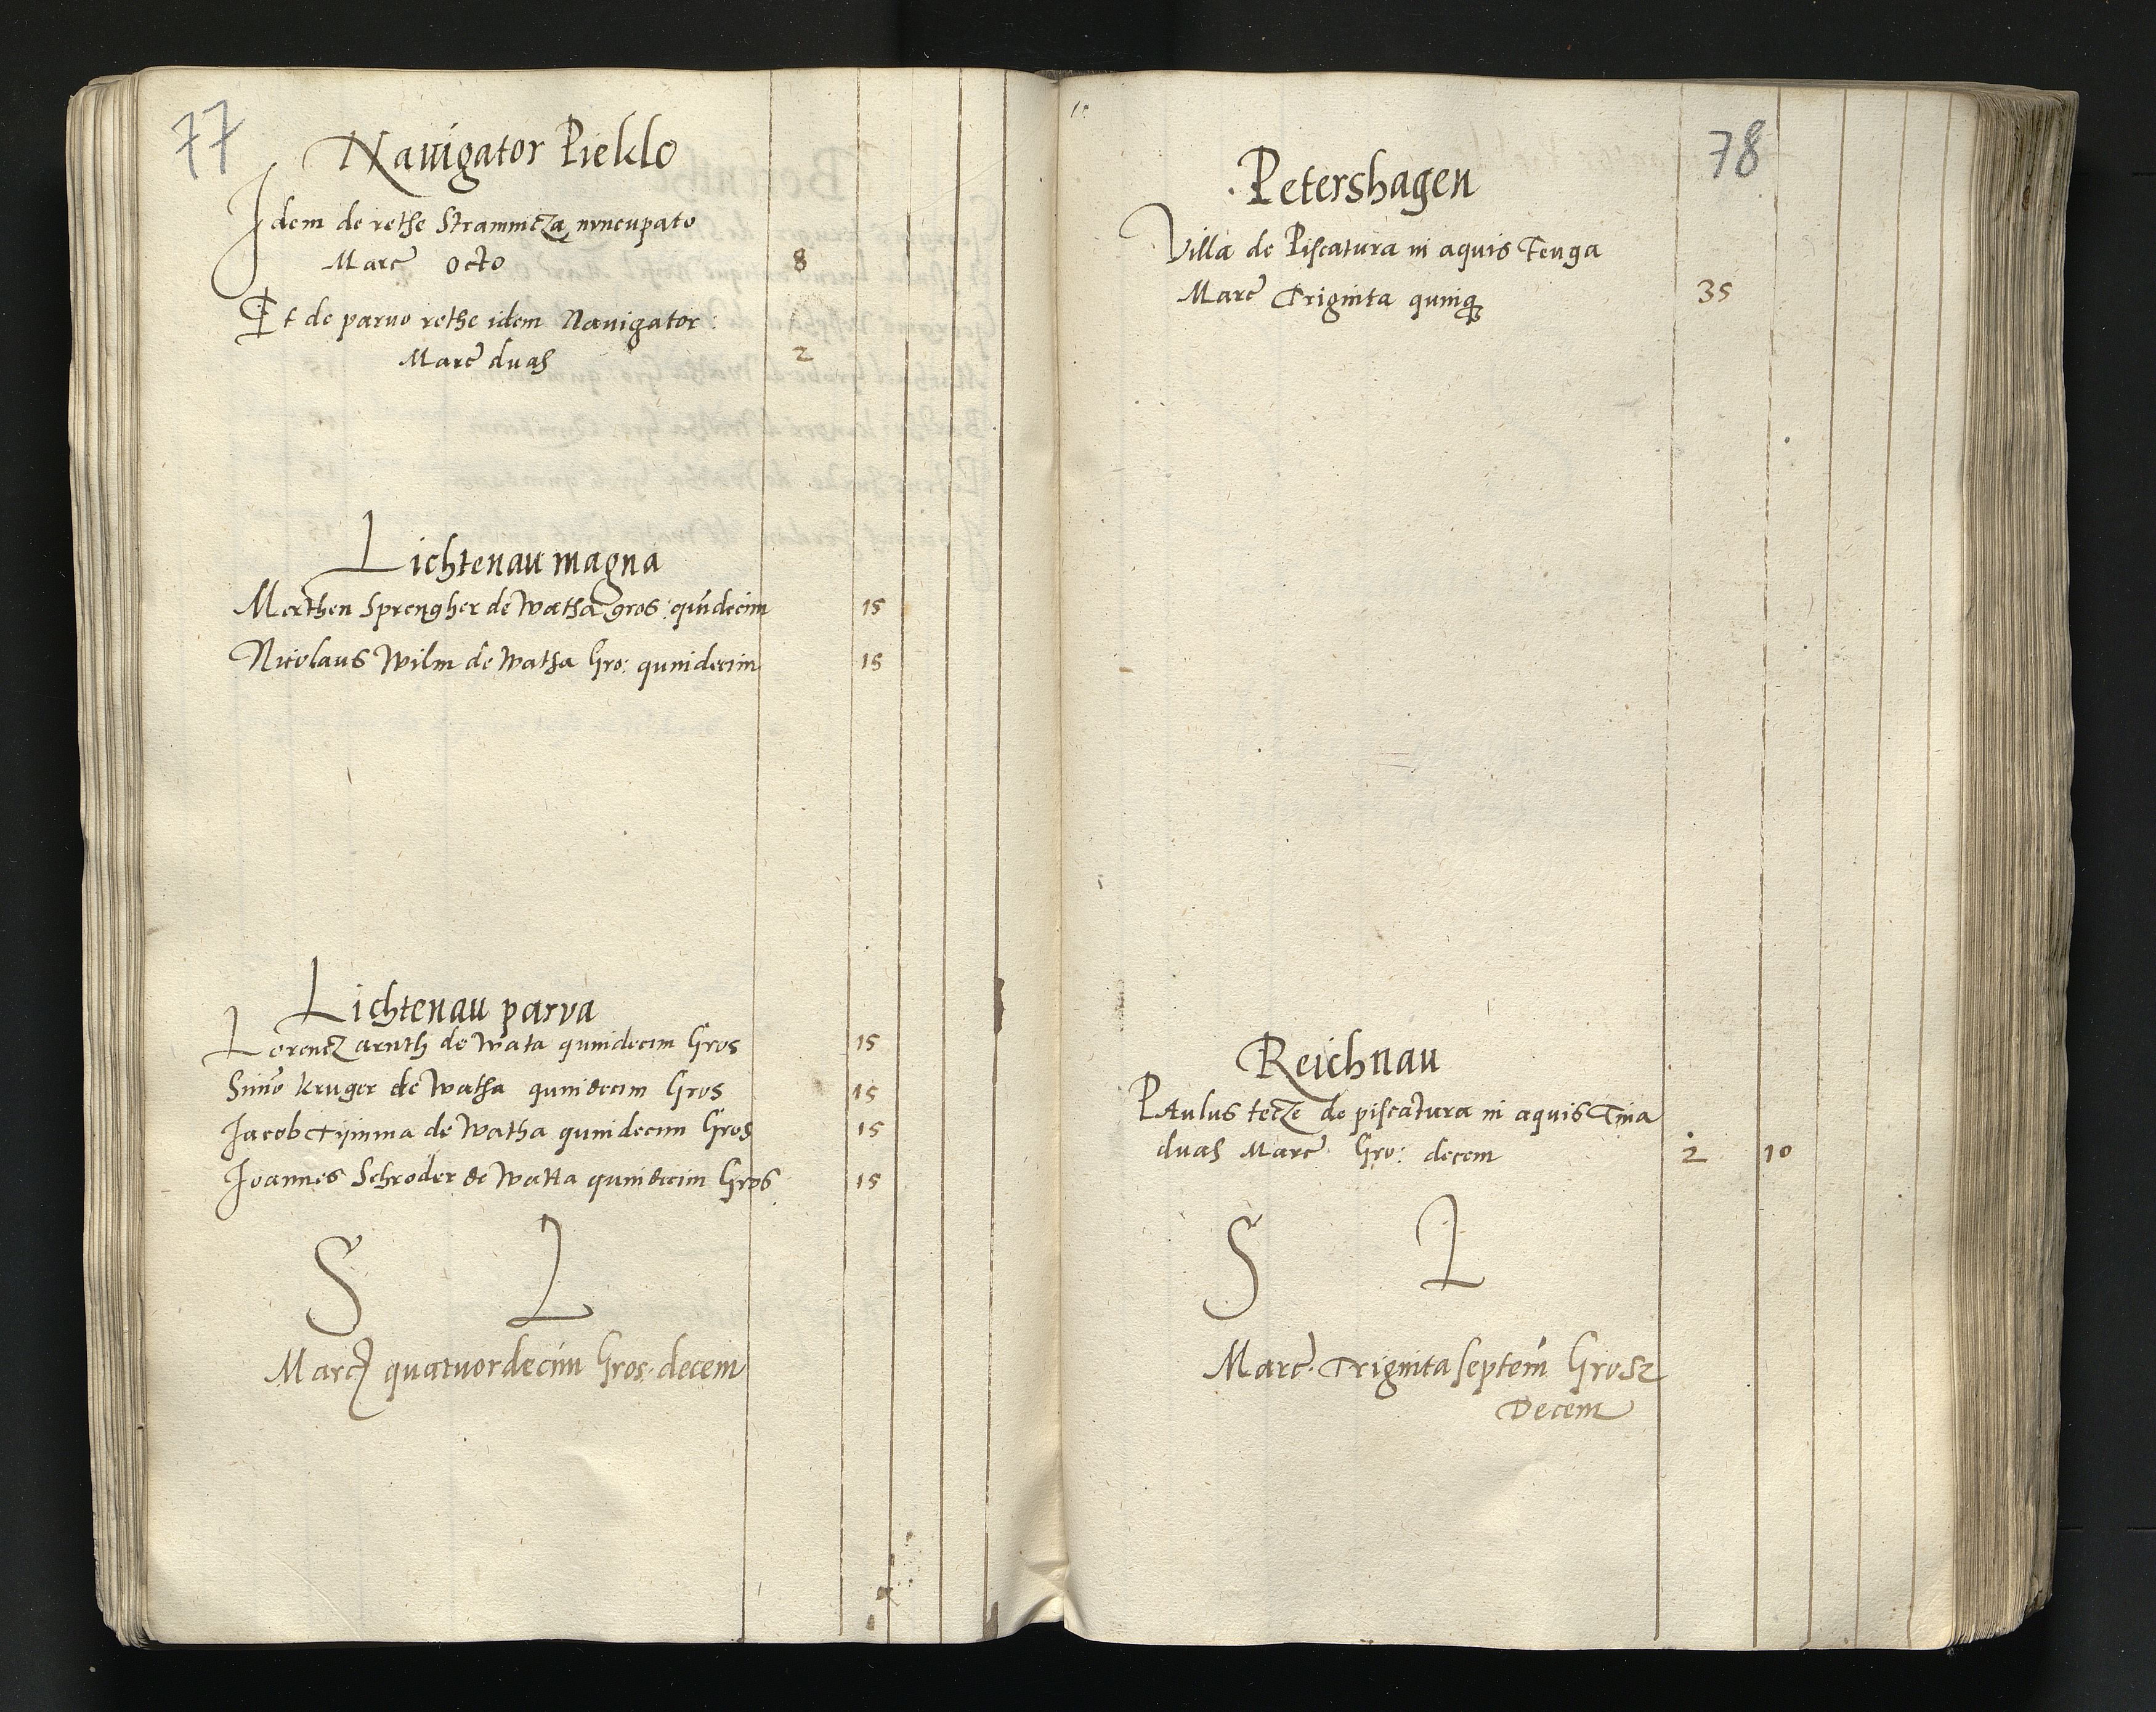 77
Nauigator Pieklo
Idem de rethe Stramnicza nuncupato
Marc octo 8
Et de paruo rethe idem Nauigator:
Marc duas 2
Lichtenau magna
Merthen Sprengher de Watha gros: quindecim 15
Nicolaus Wilm de Watha Gro: quindecim 15
Lichtenau parva
Lorencz arnth de Wata quindecim Gros 15
Simo Kruger de Watha quindecim Gros 15
Jacob Tijmma de Watha quindecim Gros 15
Joannes Schroder de Watta quindecim Gros 15
S L
Marc quatuordecim Gros. decem
78
Petershagen
Villa de Piscatura in aquis Teuga
Marc Triginta quinq 35
Reichnau
Paulus tecze de piscatura in aquis Tina
duas Marc Gro: decem 2 10
S L
Marc. Triginta septem Grosz
Decem